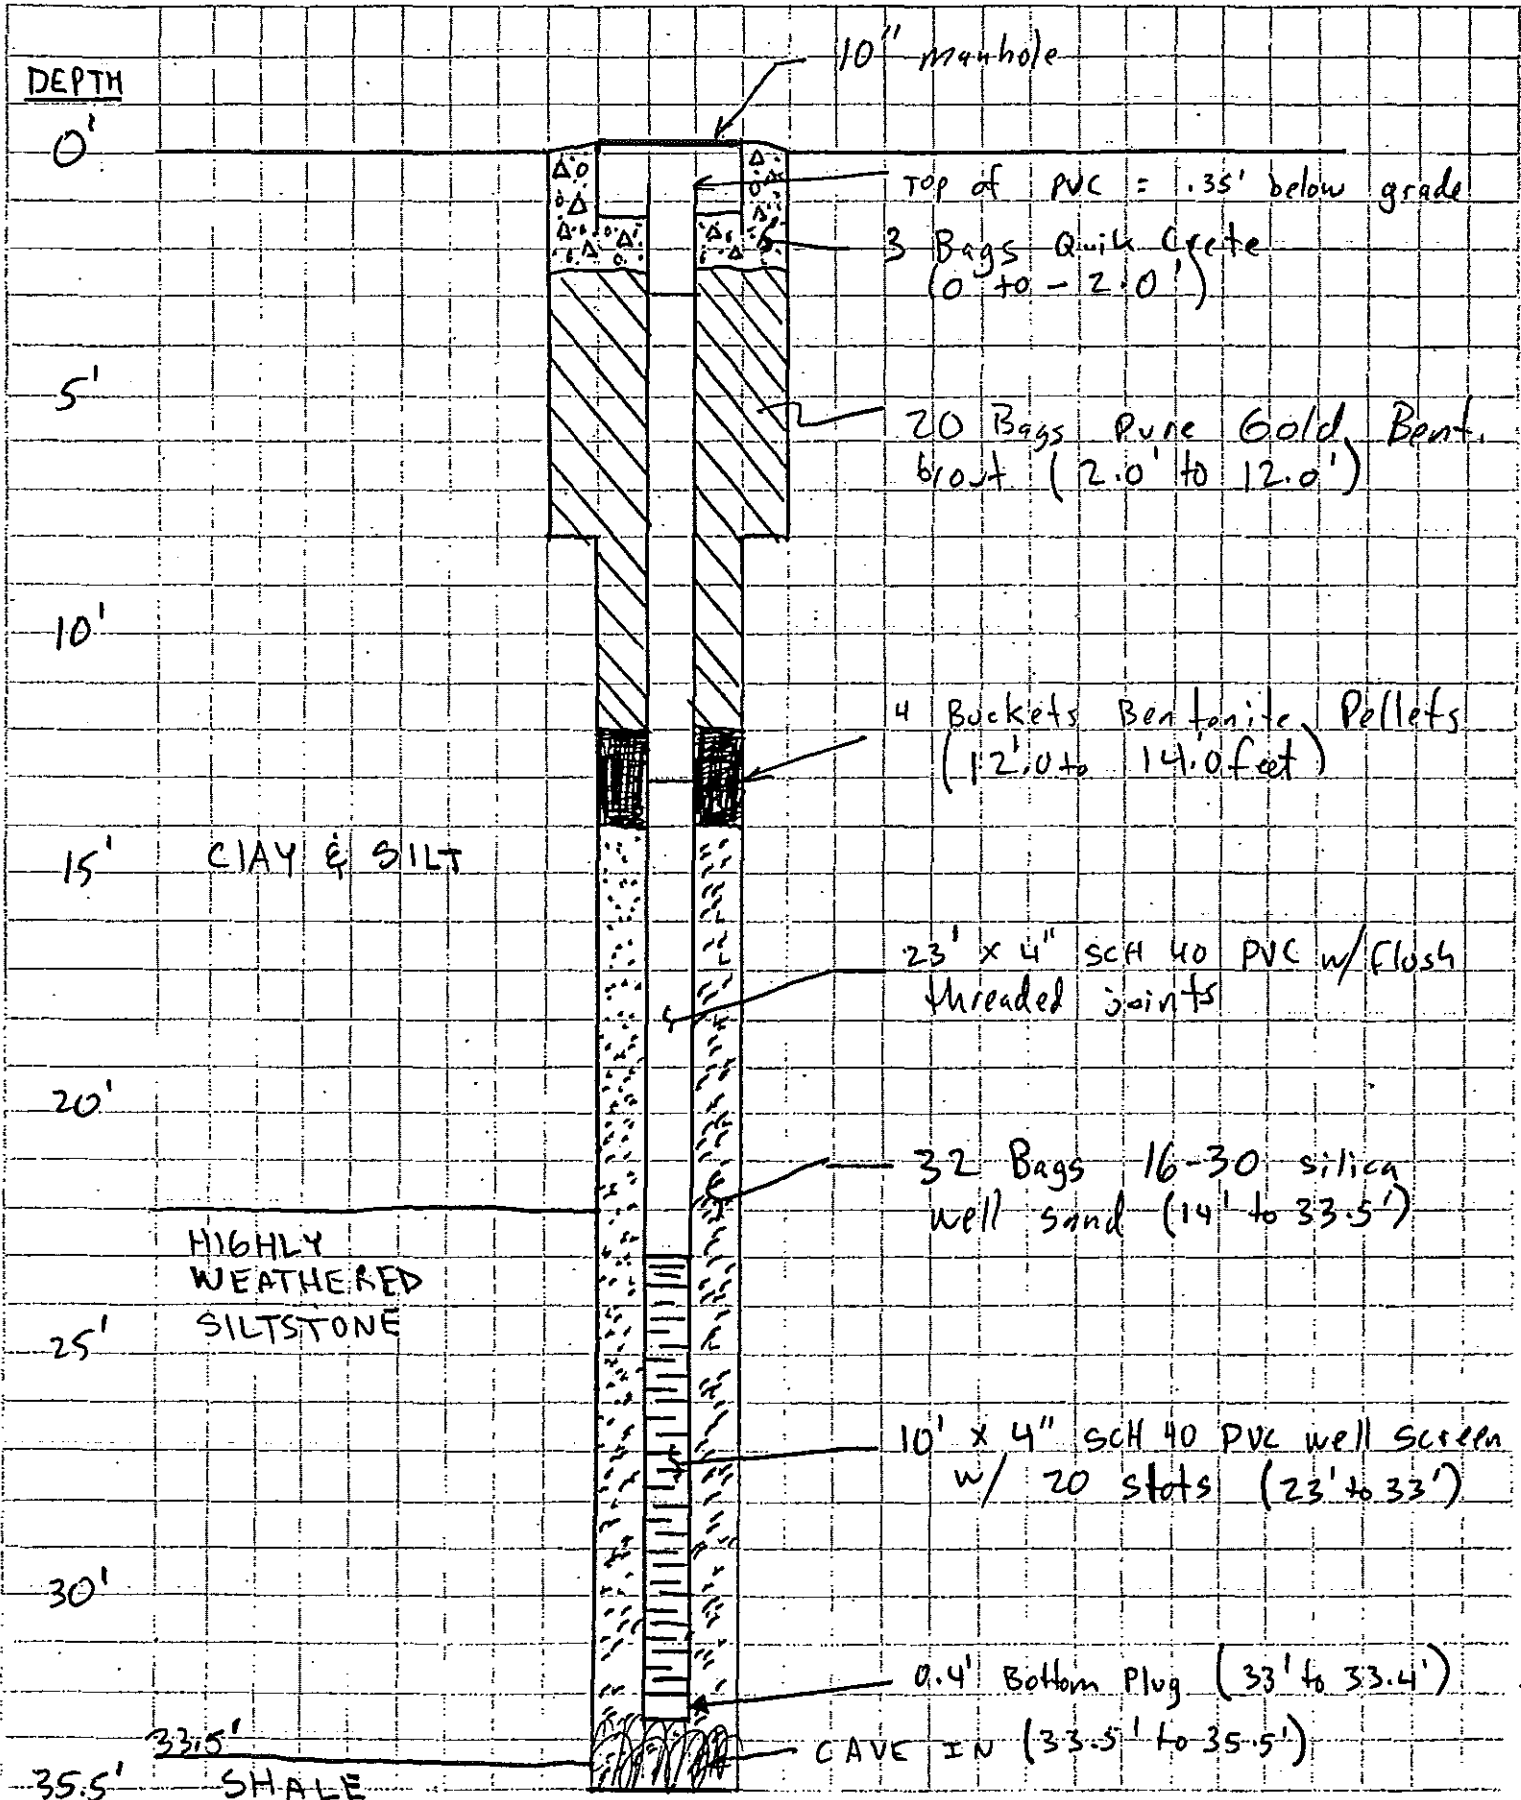 10" manhole
DEPTH
0'
TOP of PVC = .35' below grade
3 Bags Quik Crete
(0 to - 2.0')
5'
20 Bags Pure Gold Bent.
Grout (2.0' to 12.0')
10'
4 Buckets Bentonite Pellets
(12.0 to 14.0 feet)
15'
CLAY & SILT
23' x 4" SCH 40 PVC w/ flush
threaded joints
20'
32 Bags 16-30 silica
well sand (14' to 33.5')
HIGHLY
WEATHERED
SILTSTONE
25'
10' x 4" SCH 40 PVC well screen
w/ 20 slots (23' to 33')
30'
0.4' Bottom Plug (33' to 33.4')
33.5'
CAVE IN (33.5' to 35.5')
35.5'
SHALE